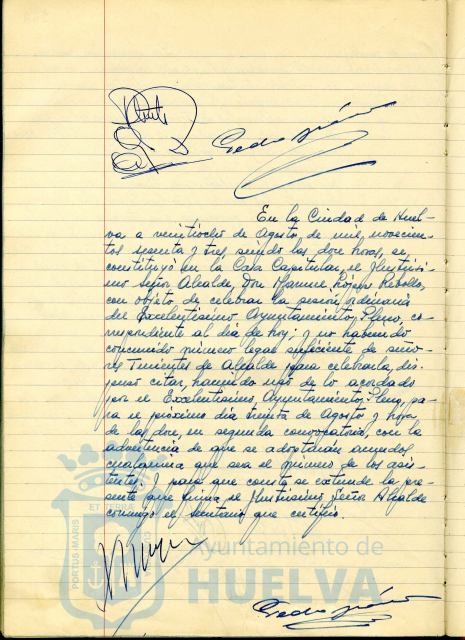 Pedro
En la Ciudad de Huel-
va a veintiocho de Agosto de mil novecien-
tos sesenta y tres, siendo las doce horas, se
constituyó en la Casa Capitular, el Ilustrísi-
mo señor Alcalde, Don Manuel López Rebollo,
con objeto de celebrar la sesión ordinaria
del Excelentísimo Ayuntamiento Pleno, co-
rrespondiente al día de hoy; y no habiendo
concurrido número legal suficiente de seño-
res Tenientes de Alcalde para celebrarla, dis-
puso citar, haciendo uso de lo acordado
por el Excelentísimo Ayuntamiento Pleno, pa-
ra el próximo día treinta de Agosto y hora
de las doce, en segunda convocatoria, con la
advertencia de que se adoptarán acuerdos
cualquiera que sea el número de los asis-
tentes. Y para que conste se extiende la pre-
sente que firma el Ilustrísimo Señor Alcalde
conmigo el Secretario que certifico.
PORTUS MARIS
ET TERRAE
Ayuntamiento de
HUELVA
Pedro